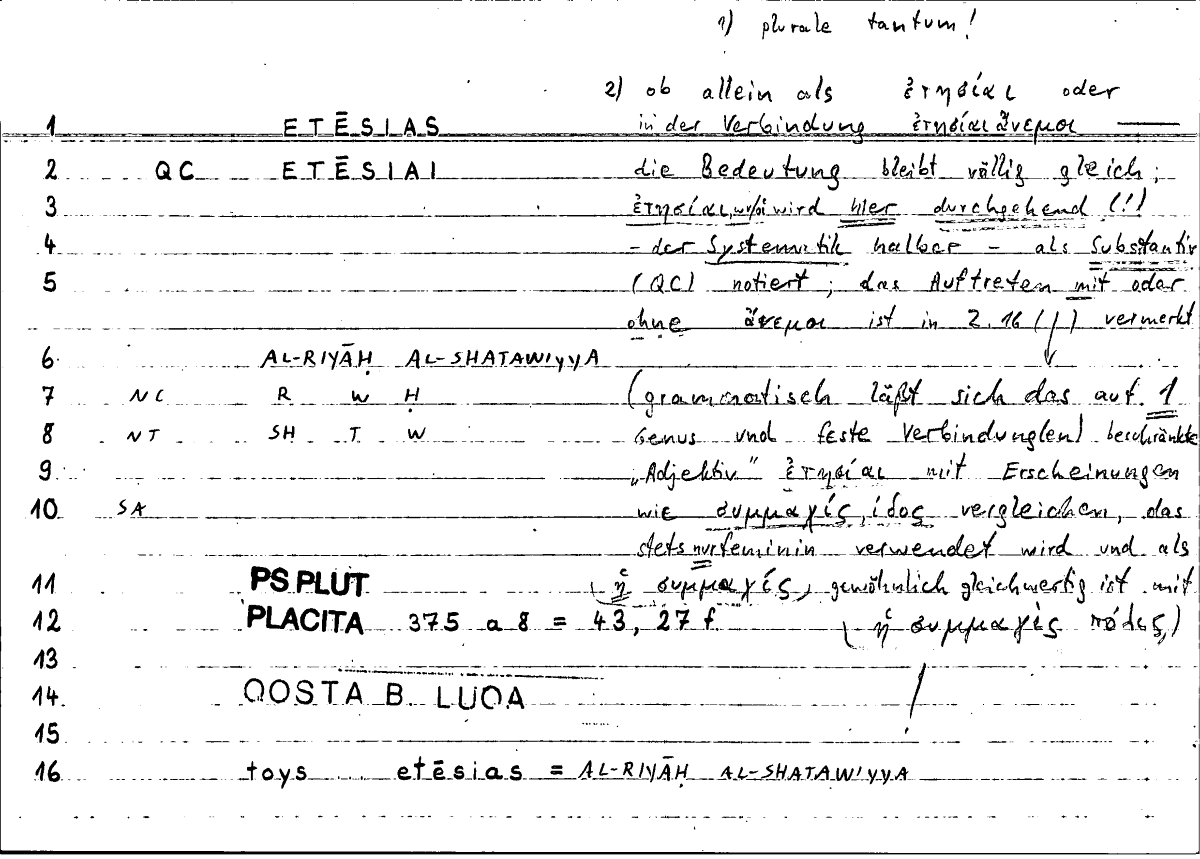 1) plurale tantum!
2) ob allein als ἐτησίαι oder
1 ETĒSIAS in der Verbindung ἐτησίαι ἄνεμοι —
2 QC ETĒSIAI die Bedeutung bleibt völlig gleich;
3 ἐτησίαι, wird hier durchgehend (!)
4 - der Systematik halber - als Substantiv
5 (QC) notiert; das Auftreten mit oder
ohne ἄνεμοι ist in 2.16 (!) vermerkt
6 AL-RIYĀḤ AL-SHATAWIYYA
7 NC R W Ḥ (grammatisch läßt sich das auf 1
8 NT SH T W Genus und feste Verbindung(en) beschränkte
9 „Adjektiv" ἐτησίαι mit Erscheinungen
10 SA wie συμμαχίς, ίδος vergleichen, das
stets nur feminin verwendet wird und als
11 PS PLUT ἡ συμμαχίς, gewöhnlich gleichwertig ist mit
12 PLACITA 375 a 8 = 43, 27 f. ἡ συμμαχὶς πόλις)
13
14 QOSTA B. LUQA
15
16 toys etēsias = AL-RIYĀḤ AL-SHATAWIYYA